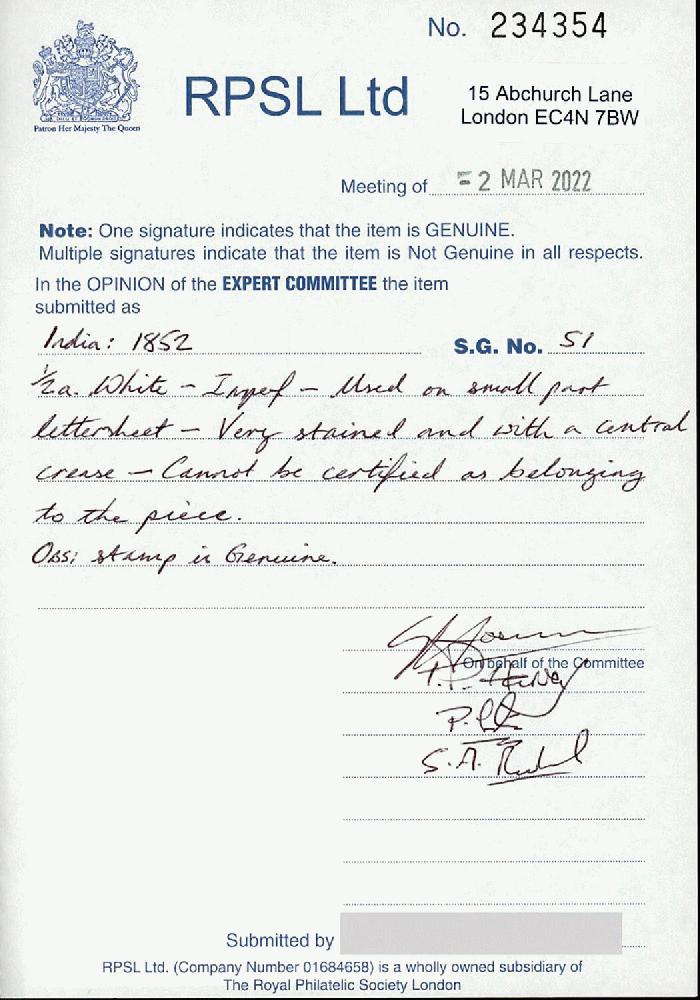 No. 234354
RPSL Ltd
15 Abchurch Lane
London EC4N 7BW
Patron Her Majesty The Queen
Meeting of - 2 MAR 2022
Note: One signature indicates that the item is GENUINE.
Multiple signatures indicate that the item is Not Genuine in all respects.
In the OPINION of the EXPERT COMMITTEE the item
submitted as
India: 1852 S.G. No. S1
1/2a. White - Imperf - Used on small part
lettersheet - Very stained and with a central
crease - Cannot be certified as belonging
to the piece.
Obs: stamp is Genuine.
On behalf of the Committee
Submitted by
RPSL Ltd. (Company Number 01684658) is a wholly owned subsidiary of
The Royal Philatelic Society London